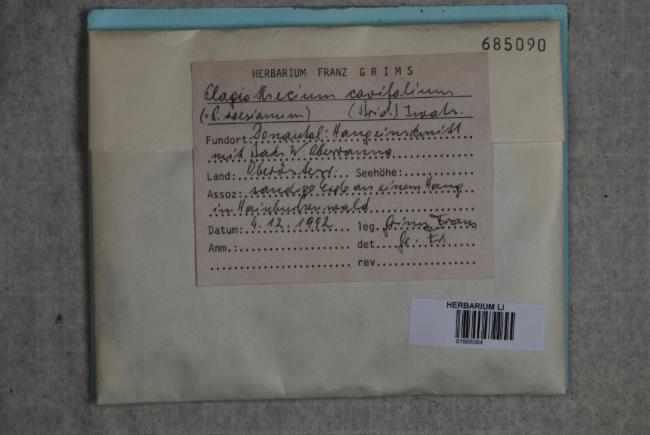 685090
HERBARIUM FRANZ GRIMS
Plagiothecium cavifolium
(= P. roesianum) (Brid.) Iwats.
Fundort: Donautal: Hangeinschnitt
mit Bach W Oberranna
Land: Oberösterr. Seehöhe:
Assoz: sandige Erde an einem Hang
in Hainbuchenwald
Datum: 4.12.1992 leg. Grims Franz
Anm.: det. Gr. Fr.
rev.
HERBARIUM LI
01668384